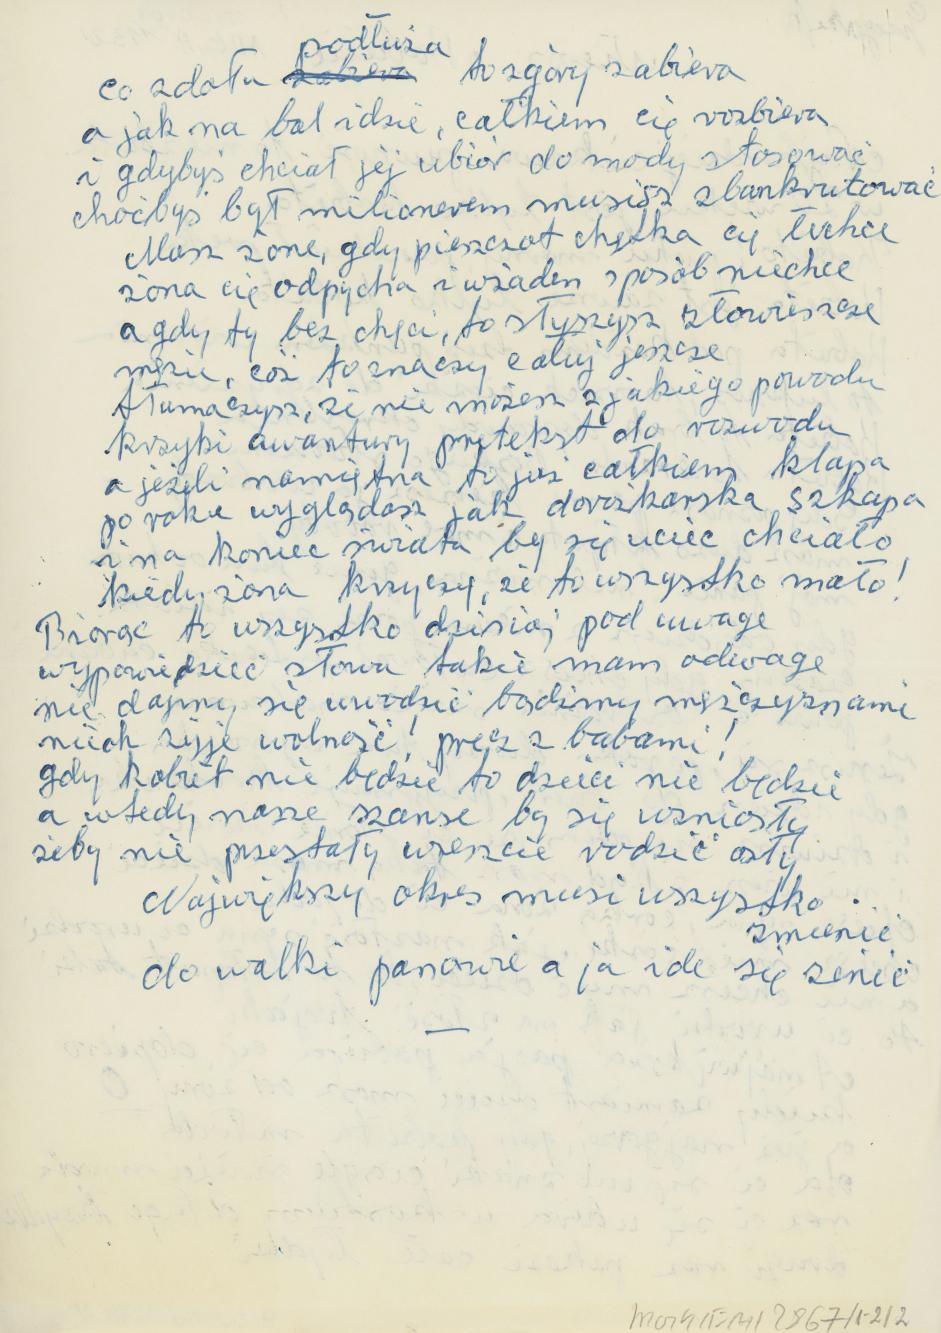 podłuża
co zdołu zabiera to zgóry zabiera
a jak na bal idzie, całkiem cię rozbiera
i gdybyś chciał jej ubiór do mody stosować
choćbyś był milionerem musisz zbankrutować
Masz żone, gdy pieszczot chętka cię łechce
żona cię odpycha i wżaden sposób niechce
a gdy ty bez chęci, to słyszysz złowieszcze
mężu, cóż to znaczy całuj jeszcze
tłumaczysz, że nie możesz z jakiego powodu
krzyki awantury pretekst do rozwodu
a jeżeli namiętna to już całkiem klapa
po roku wyglądasz jak dorożkarska szkapa
i na koniec świata by się uciec chciało
kiedy żona krzyczy, że to wszystko mało!
Biorąc to wszystko dzisiaj pod uwagę
wypowiedzieć słowa takie mam odwagę
nie dajmy się uwodzić bądźmy mężczyznami
niech żyje wolność! precz z babami!
gdy kobiet nie będzie to dzieci nie będzie
a wtedy nasze szanse by się wzniosły
żeby nie przestały wreszcie rodzić osły
Największy okres musi wszystko
zmienić
do walki panowie a ja ide się żenić